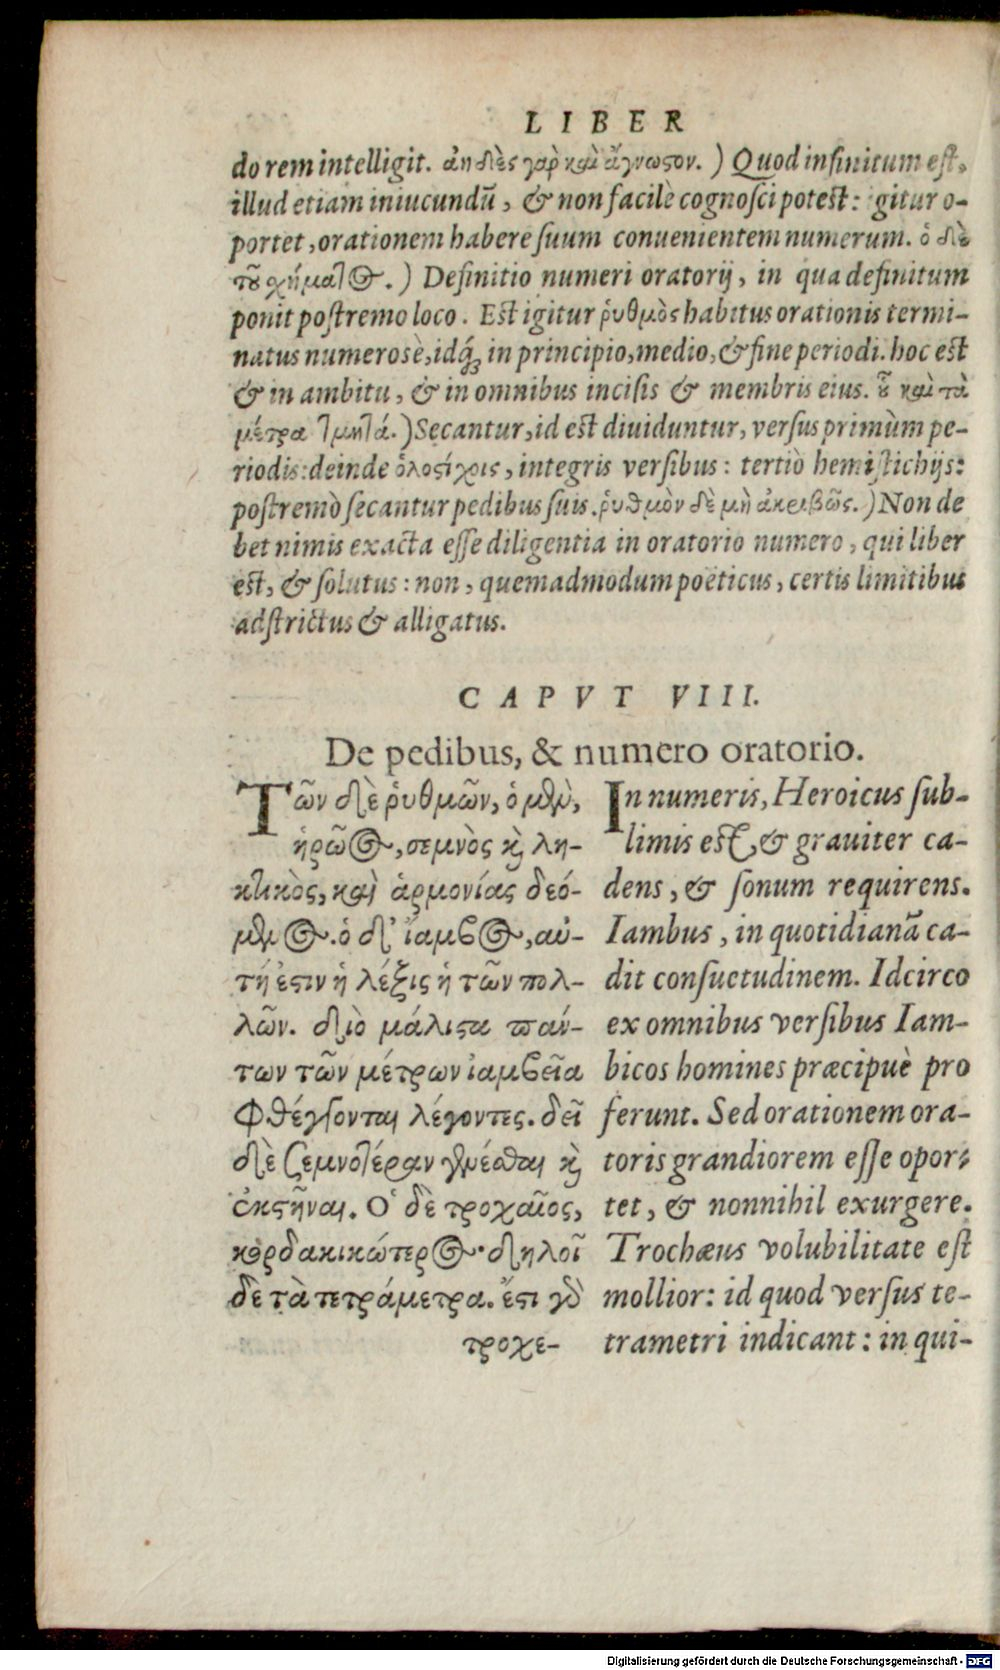 LIBER
do rem intelligit. ἀηδὲς γὰρ καὶ ἄγνωστον.) Quod infinitum est,
illud etiam iniucundū, & non facilè cognosci potest: gitur o-
portet, orationem habere suum conuenientem numerum. ὁ δὲ
τοῦ χήματος.) Definitio numeri oratorij, in qua definitum
ponit postremo loco. Est igitur ῥυθμὸς habitus orationis termi-
natus numerosè, idq́ʒ in principio, medio, & fine periodi. hoc est
& in ambitu, & in omnibus incisis & membris eius. οὗ καὶ τὰ
μέτρα τμητά.) Secantur, id est diuiduntur, versus primùm pe-
riodis: deinde ὁλοστίχοις, integris versibus: tertiò hemistichijs:
postremò secantur pedibus suis. ῥυθμὸν δὲ μὴ ἀκριβῶς.) Non de
bet nimis exacta esse diligentia in oratorio numero, qui liber
est, & solutus: non, quemadmodum poëticus, certis limitibus
adstrictus & alligatus.
CAPVT VIII.
De pedibus, & numero oratorio.
Τῶν δὲ ῥυθμῶν, ὁ μὲν,
ἡρῶος, σεμνὸς καὶ λη-
κτικὸς, καὶ ἁρμονίας δεό-
μενος. ὁ δ' ἴαμβος, αὐ-
τή ἐστιν ἡ λέξις ἡ τῶν πολ-
λῶν. διὸ μάλιστα πάν-
των τῶν μέτρων ἰαμβεῖα
φθέγγονται λέγοντες. δεῖ
δὲ σεμνοτέραν γενέσθαι καὶ
ἐκστῆναι. Ὁ δὲ τροχαῖος,
κορδακικώτερος· δηλοῖ
δὲ τὰ τετράμετρα. ἔστι γὰρ
τροχε-
In numeris, Heroicus sub-
limis est, & grauiter ca-
dens, & sonum requirens.
Iambus, in quotidianā ca-
dit consuetudinem. Idcirco
ex omnibus versibus Iam-
bicos homines præcipuè pro
ferunt. Sed orationem ora-
toris grandiorem esse opor-
tet, & nonnihil exurgere.
Trochæus volubilitate est
mollior: id quod versus te-
trametri indicant: in qui-
Digitalisierung gefördert durch die Deutsche Forschungsgemeinschaft - DFG